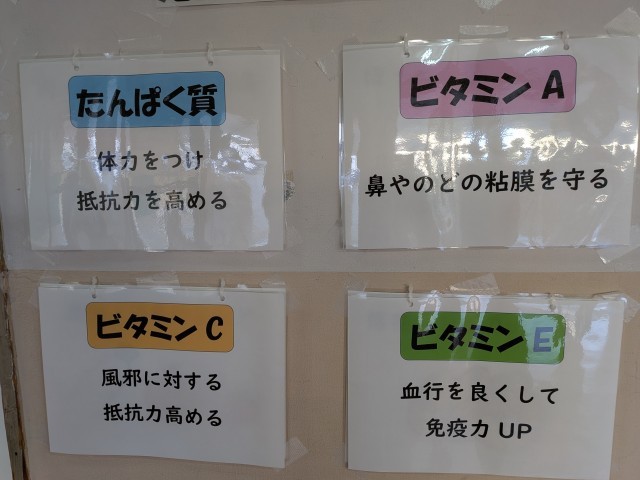 たんぱく質
体力をつけ
抵抗力を高める
ビタミン A
鼻やのどの粘膜を守る
ビタミン C
風邪に対する
抵抗力高める
ビタミン E
血行を良くして
免疫力 UP